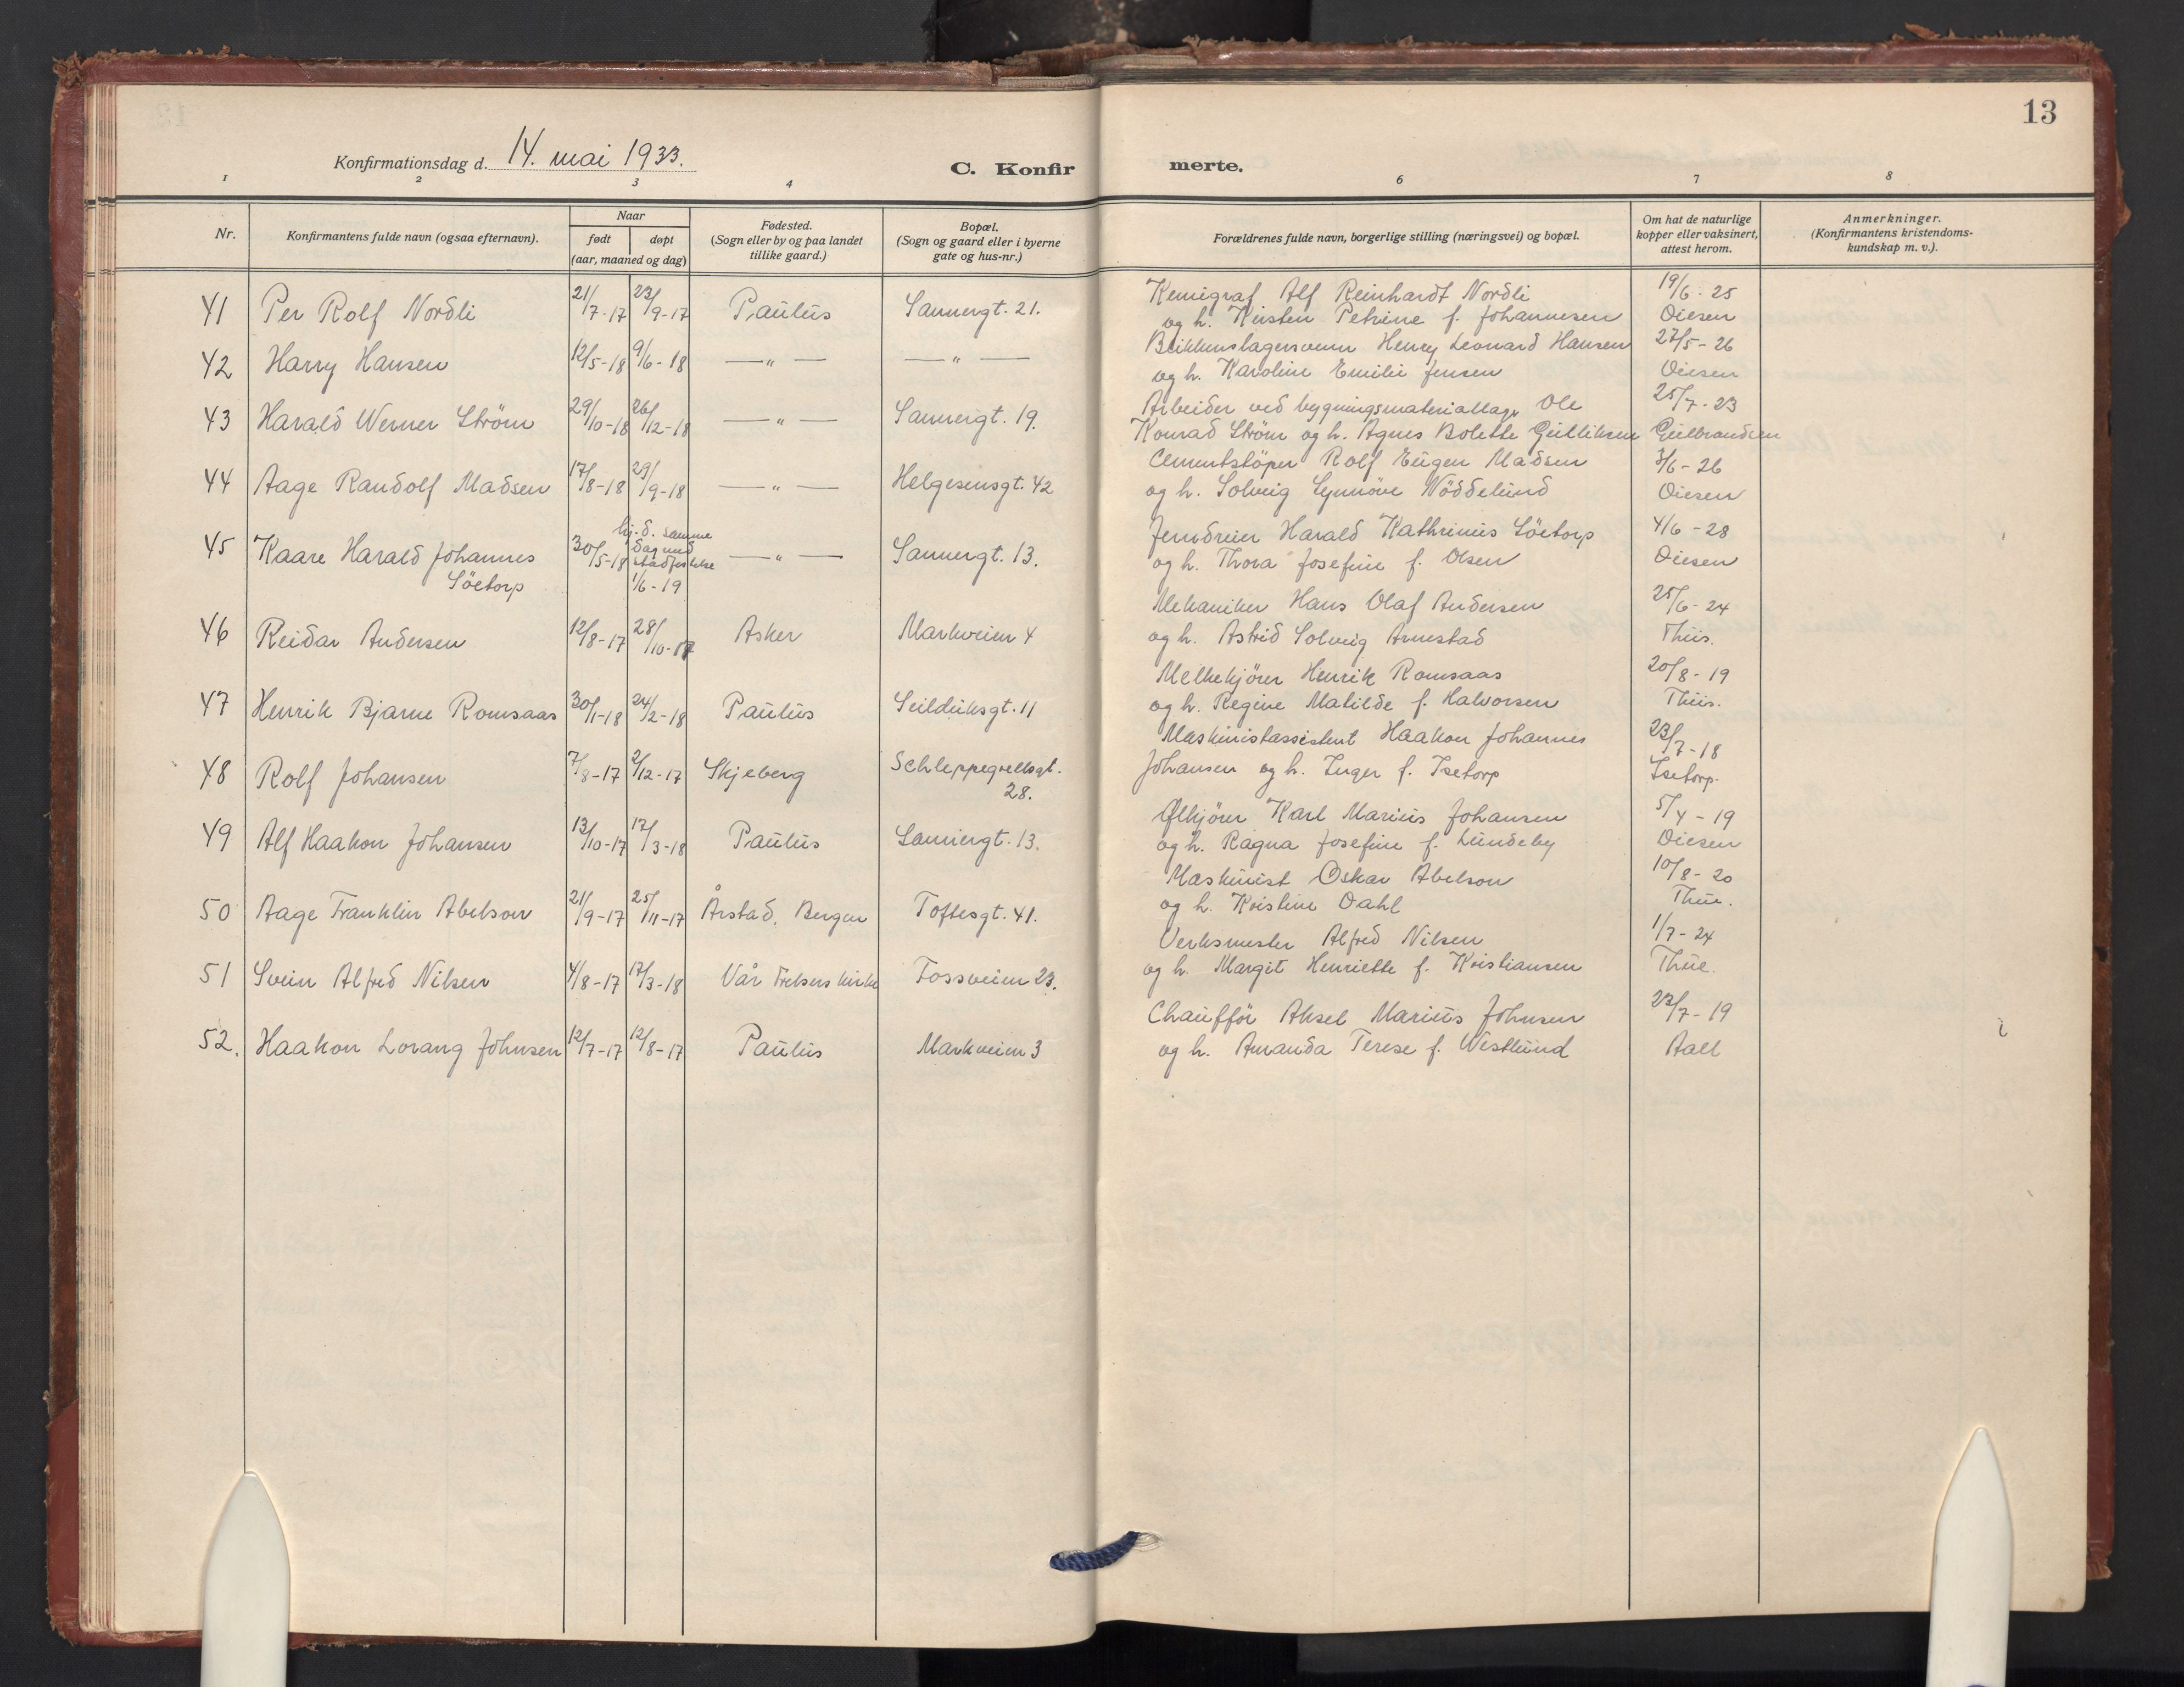 13
Konfirmationsdag d. 14. mai 1933.
C. Konfirmerte.
1 2 3 4 6 7 8
Nr. Konfirmantens fulde navn (ogsaa efternavn). Naar født døpt (aar, maaned og dag) Fødested. (Sogn eller by og paa landet tillike gaard.) Bopæl. (Sogn og gaard eller i byerne gate og hus-nr.) Forældrenes fulde navn, borgerlige stilling (næringsvei) og bopæl. Om hat de naturlige kopper eller vaksinert, attest herom. Anmerkninger. (Konfirmantens kristendomskundskap m. v.).
41 Per Rolf Nordli 21/7-17 23/9-17 Paulus Sannergt. 21. Kemigraf Alf Reinhardt Nordli 19/6-25
og h. Kirsten Petrine f. Johannesen Oiesen
42 Harry Hansen 12/5-18 9/6-18 —"— —"— Blikkenslagersvenn Henry Leonard Hansen 27/5-26
og h. Karoline Emilie Jensen Oiesen
43 Harald Werner Ström 29/10-18 26/12-18 —"— Sannergt. 19. Arbeider ved bygningsmateriallag, Ole 25/7-23
Konrad Ström og h. Agnes Bolette Gulliksen Gulbrandsen
44 Aage Randolf Madsen 17/8-18 29/9-18 —"— Helgesensgt. 42 Cementstöper Rolf Eugen Madsen 3/6-26
og h. Solveig Synnöve Nöddelund Oiesen
45 Kaare Harald Johannes 30/5-18 hj.d. samme dag med stadfestelse —"— Sannergt. 13. Jerndreier Harald Kathrinus Söetorp 4/6-28
Söetorp 1/6-19 og h. Thora Josefine f. Olsen Oiesen
46 Reidar Andersen 12/8-17 28/10-17 Asker Markveien 4 Mekaniker Hans Olaf Andersen 25/6-24
og h. Astrid Solveig Arnestad Thiis.
47 Henrik Bjarne Romsaas 30/1-18 24/2-18 Paulus Seilduksgt. 11 Melkekjörer Henrik Romsaas 20/8-19
og h. Regine Matilde f. Halvorsen Thiis.
48 Rolf Johansen 7/8-17 2/12-17 Skjeberg Schleppegrellsgt. 28. Maskinistassistent Haakon Johannes 23/7-18
Johansen og h. Inger f. Isetorp Isetorp.
49 Alf Haakon Johansen 13/10-17 17/3-18 Paulus Sannergt. 13. Ölkjörer Karl Marius Johansen 5/4-19
og h. Ragna Josefine f. Lundeby Oiesen
50 Aage Franklin Abelson 21/9-17 25/11-17 Årstad, Bergen Toftesgt. 41. Maskinist Oskar Abelson 10/8-20
og h. Kristine Dahl Thiie.
51 Svein Alfred Nilsen 4/8-17 17/3-18 Vår Frelsers kirke Fossveien 23. Verksmester Alfred Nilsen 1/7-24
og h. Margit Henriette f. Kristiansen Thiie.
52. Haakon Lorang Johnsen 12/7-17 12/8-17 Paulus Markveien 3 Chaufför Aksel Marius Johnsen 23/7-19
og h. Amanda Terese f. Westlund Aall